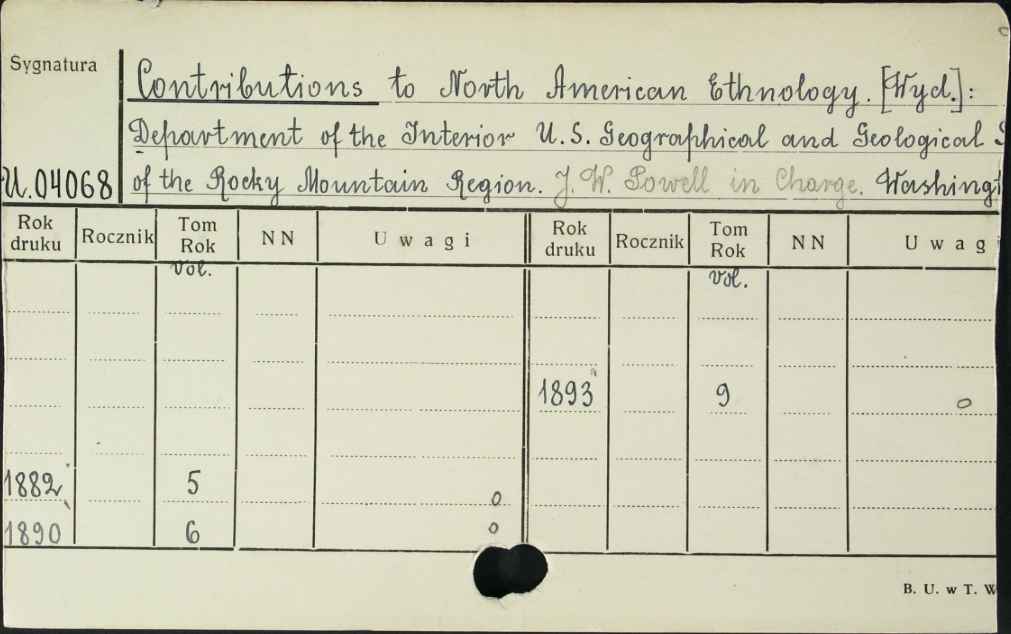 Sygnatura
Contributions to North American Ethnology. [Wyd.]:
Department of the Interior U.S. Geographical and Geological S
U.04068 of the Rocky Mountain Region. J. W. Powell in Charge. Washingt
Rok druku Rocznik Tom Rok NN Uwagi Rok druku Rocznik Tom Rok NN Uwag
Vol. Vol.
1893 9 o
1882 5 o
1890 6 o
B. U. w T. W